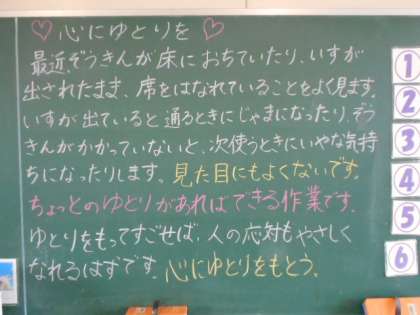 ♡ 心にゆとりを ♡
最近、ぞうきんが床におちていたり、いすが
出されたまま、席をはなれていることをよく見ます。
いすが出ていると通るときにじゃまになったり、ぞう
きんがかかっていないと、次使うときにいやな気持
ちになったりします。見た目にもよくないです。
ちょっとのゆとりがあればできる作業です。
ゆとりをもってすごせば、人の応対もやさしく
なれるはずです。心にゆとりをもとう。
①
②
③
④
⑤
⑥